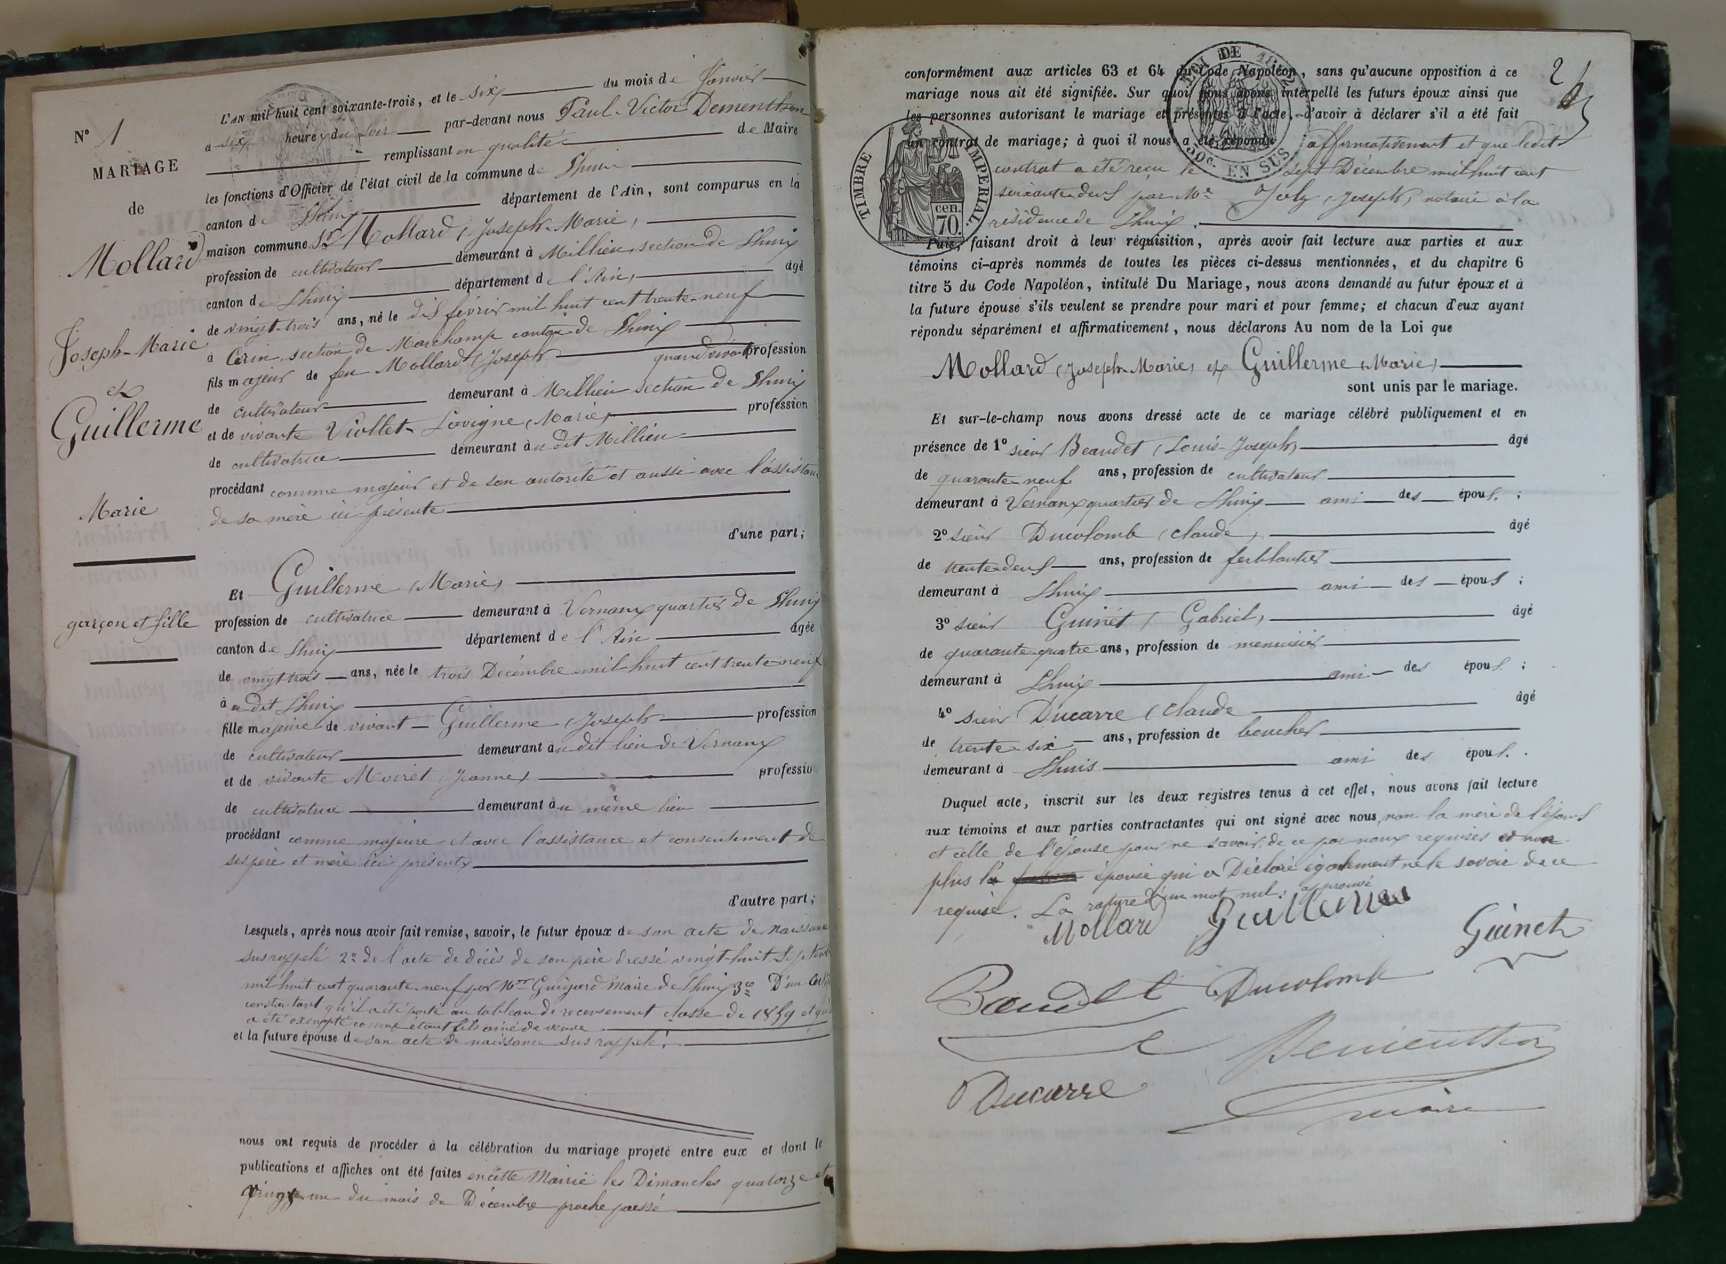 N° 1
MARIAGE
de
Mollard
Joseph-Marie
et
Guillerme
Marie
garçon et fille
L'AN mil huit cent soixante-trois, et le six du mois de Janvier
à six heures du soir par-devant nous Paul-Victor Dementhon
remplissant en qualité de Maire
les fonctions d'Officier de l'état civil de la commune de Lhuis
canton de Lhuis département de l'Ain, sont comparus en la
maison commune Sr Mollard (Joseph-Marie)
profession de cultivateur demeurant à Millieu section de Lhuis
canton de Lhuis département de l'Ain, âgé
de vingt-trois ans, né le dix février mil huit cent trente-neuf
à Cerin, section de Marchamp canton de Lhuis
fils majeur de feu Mollard (Joseph) quand vivait profession
de cultivateur demeurant à Millieu section de Lhuis
et de vivante Viollet (Marie) profession
de cultivatrice demeurant au dit Millieu
procédant comme majeur et de son autorité et aussi avec l'assistance
de sa mère ici présente
d'une part;
Et Guillerme (Marie)
profession de cultivatrice demeurant à Vernaux quartier de Lhuis
canton de Lhuis département de l'Ain âgée
de vingt-trois ans, née le trois Décembre mil huit cent trente-neuf
à u dit Lhuis
fille majeure de vivant Guillerme (Joseph) profession
de cultivateur demeurant au dit lieu de Vernaux
et de vivante Moiret (Jeanne) profession
de cultivatrice demeurant au même lieu
procédant comme majeure et avec l'assistance et consentement de
ses père et mère ici présents
d'autre part;
Lesquels, après nous avoir fait remise, savoir, le futur époux de son acte de naissance
susrappelé 2° de l'acte de décès de son père dressé vingt-huit Septembre
mil huit cent quarante-neuf par Mr Guigard Maire de Lhuis 3° D'un
constatant qu'il a été porté au tableau de recensement classe de 1859 et qu'il
a été exempté comme étant fils aîné de veuve
et la future épouse de son acte de naissance susrappelé.
nous ont requis de procéder à la célébration du mariage projeté entre eux et dont les
publications et affiches ont été faites en cette Mairie les Dimanches quatorze et
vingt-un du mois de Décembre proche passé
2
conformément aux articles 63 et 64 du Code Napoléon, sans qu'aucune opposition à ce
mariage nous ait été signifiée. Sur quoi nous avons interpellé les futurs époux ainsi que
les personnes autorisant le mariage et présentes à l'acte, d'avoir à déclarer s'il a été fait
un contrat de mariage; à quoi il nous a été répondu affirmativement et que ledit
contrat a été reçu le sept Décembre mil huit cent
soixante-deux par Me Joly (Joseph) notaire à la
résidence de Lhuis.
TIMBRE IMPÉRIAL
70 cen.
LOI DE 1862
50c. EN SUS
Puis, faisant droit à leur réquisition, après avoir fait lecture aux parties et aux
témoins ci-après nommés de toutes les pièces ci-dessus mentionnées, et du chapitre 6
titre 5 du Code Napoléon, intitulé Du Mariage, nous avons demandé au futur époux et à
la future épouse s'ils veulent se prendre pour mari et pour femme; et chacun d'eux ayant
répondu séparément et affirmativement, nous déclarons Au nom de la Loi que
Mollard (Joseph-Marie) et Guillerme (Marie)
sont unis par le mariage.
Et sur-le-champ nous avons dressé acte de ce mariage célébré publiquement et en
présence de 1° sieur Beaudet (Louis-Joseph) âgé
de quarante-neuf ans, profession de cultivateur
demeurant à Vernaux quartier de Lhuis ami des époux;
2° sieur Ducolomb (Claude), âgé
de trente-deux ans, profession de ferblantier
demeurant à Lhuis ami des époux;
3° sieur Guinet (Gabriel), âgé
de quarante-quatre ans, profession de menuisier
demeurant à Lhuis ami des époux;
4° sieur Ducarre (Claude) âgé
de trente-six ans, profession de boucher
demeurant à Lhuis ami des époux.
Duquel acte, inscrit sur les deux registres tenus à cet effet, nous avons fait lecture
aux témoins et aux parties contractantes qui ont signé avec nous, non la mère de l'époux
et celle de l'épouse pour ne savoir, de ce par nous requises et non
plus la épouse qui a Déclaré également ne le savoir de ce
requise. La rature d'un mot nul. approuvé
Mollard Guillerme
Guinet
Baudet Ducolomb
Dementhon
Ducarre
maire